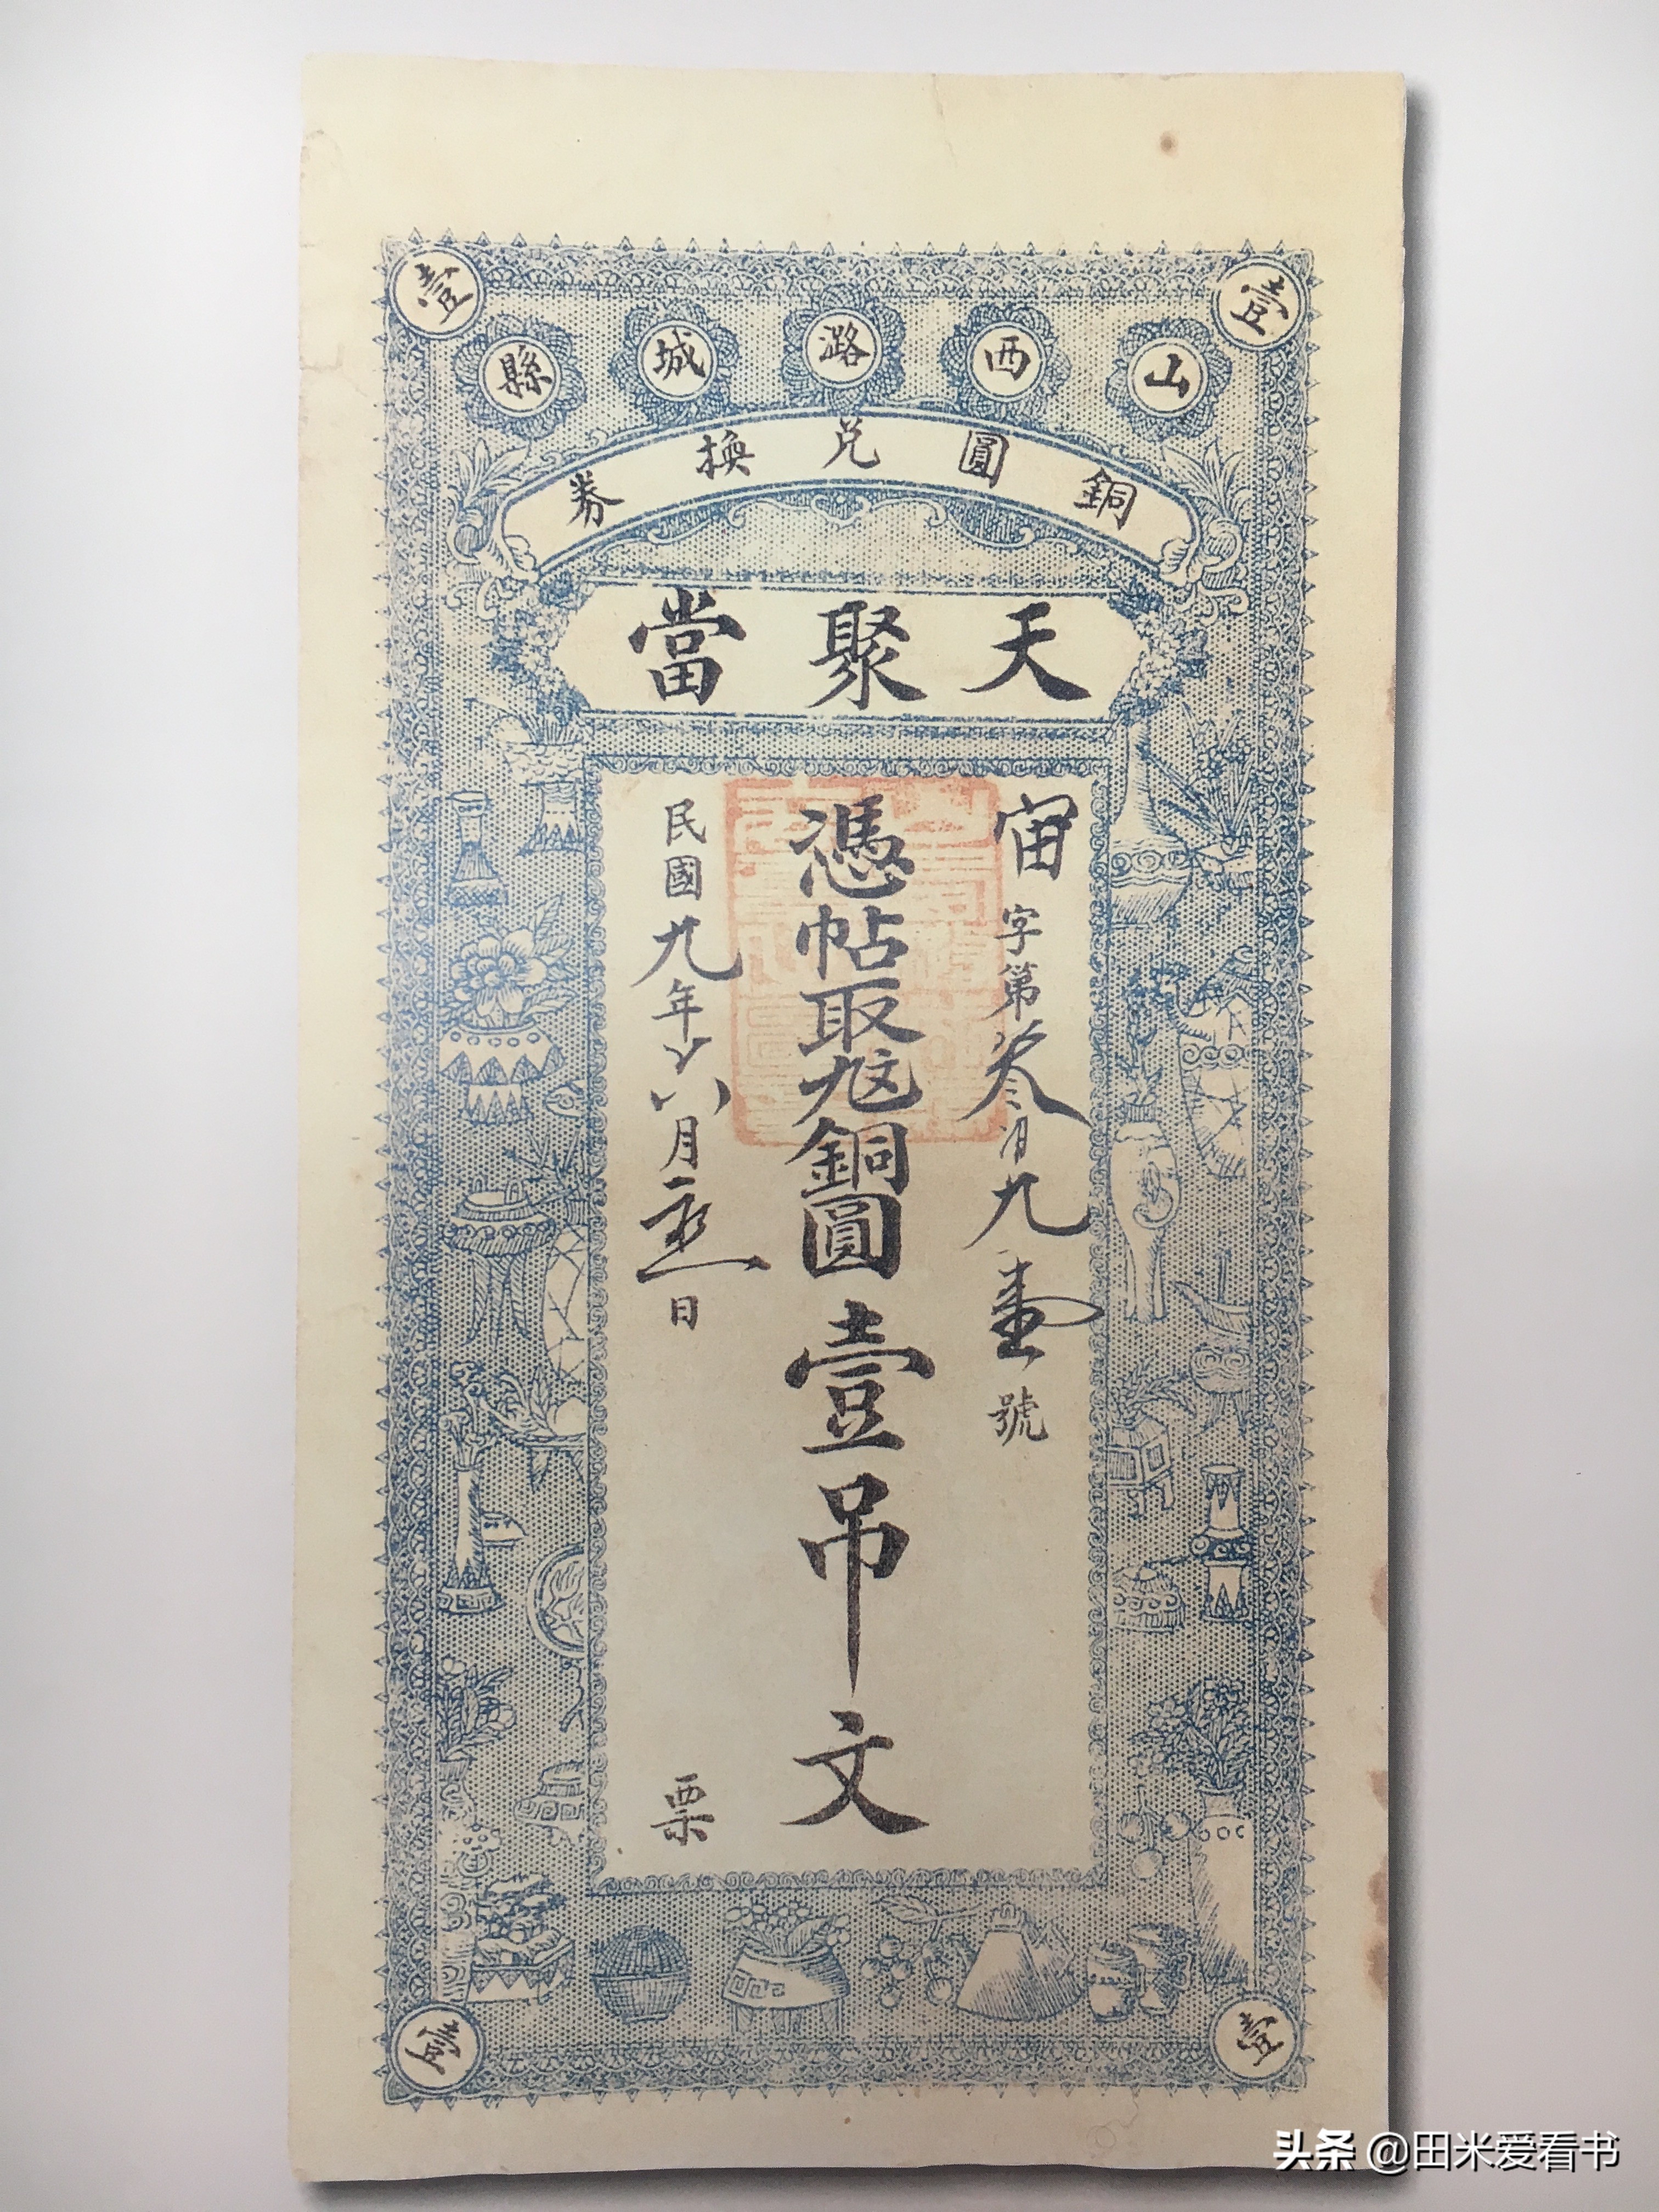 壹 壹
山西潞城縣
銅圓兌換券
天聚當
宙字第叁百九壹號
憑帖取九三銅圓壹吊文
民國九年 八月 日
票
壹 壹
头条 @田米爱看书